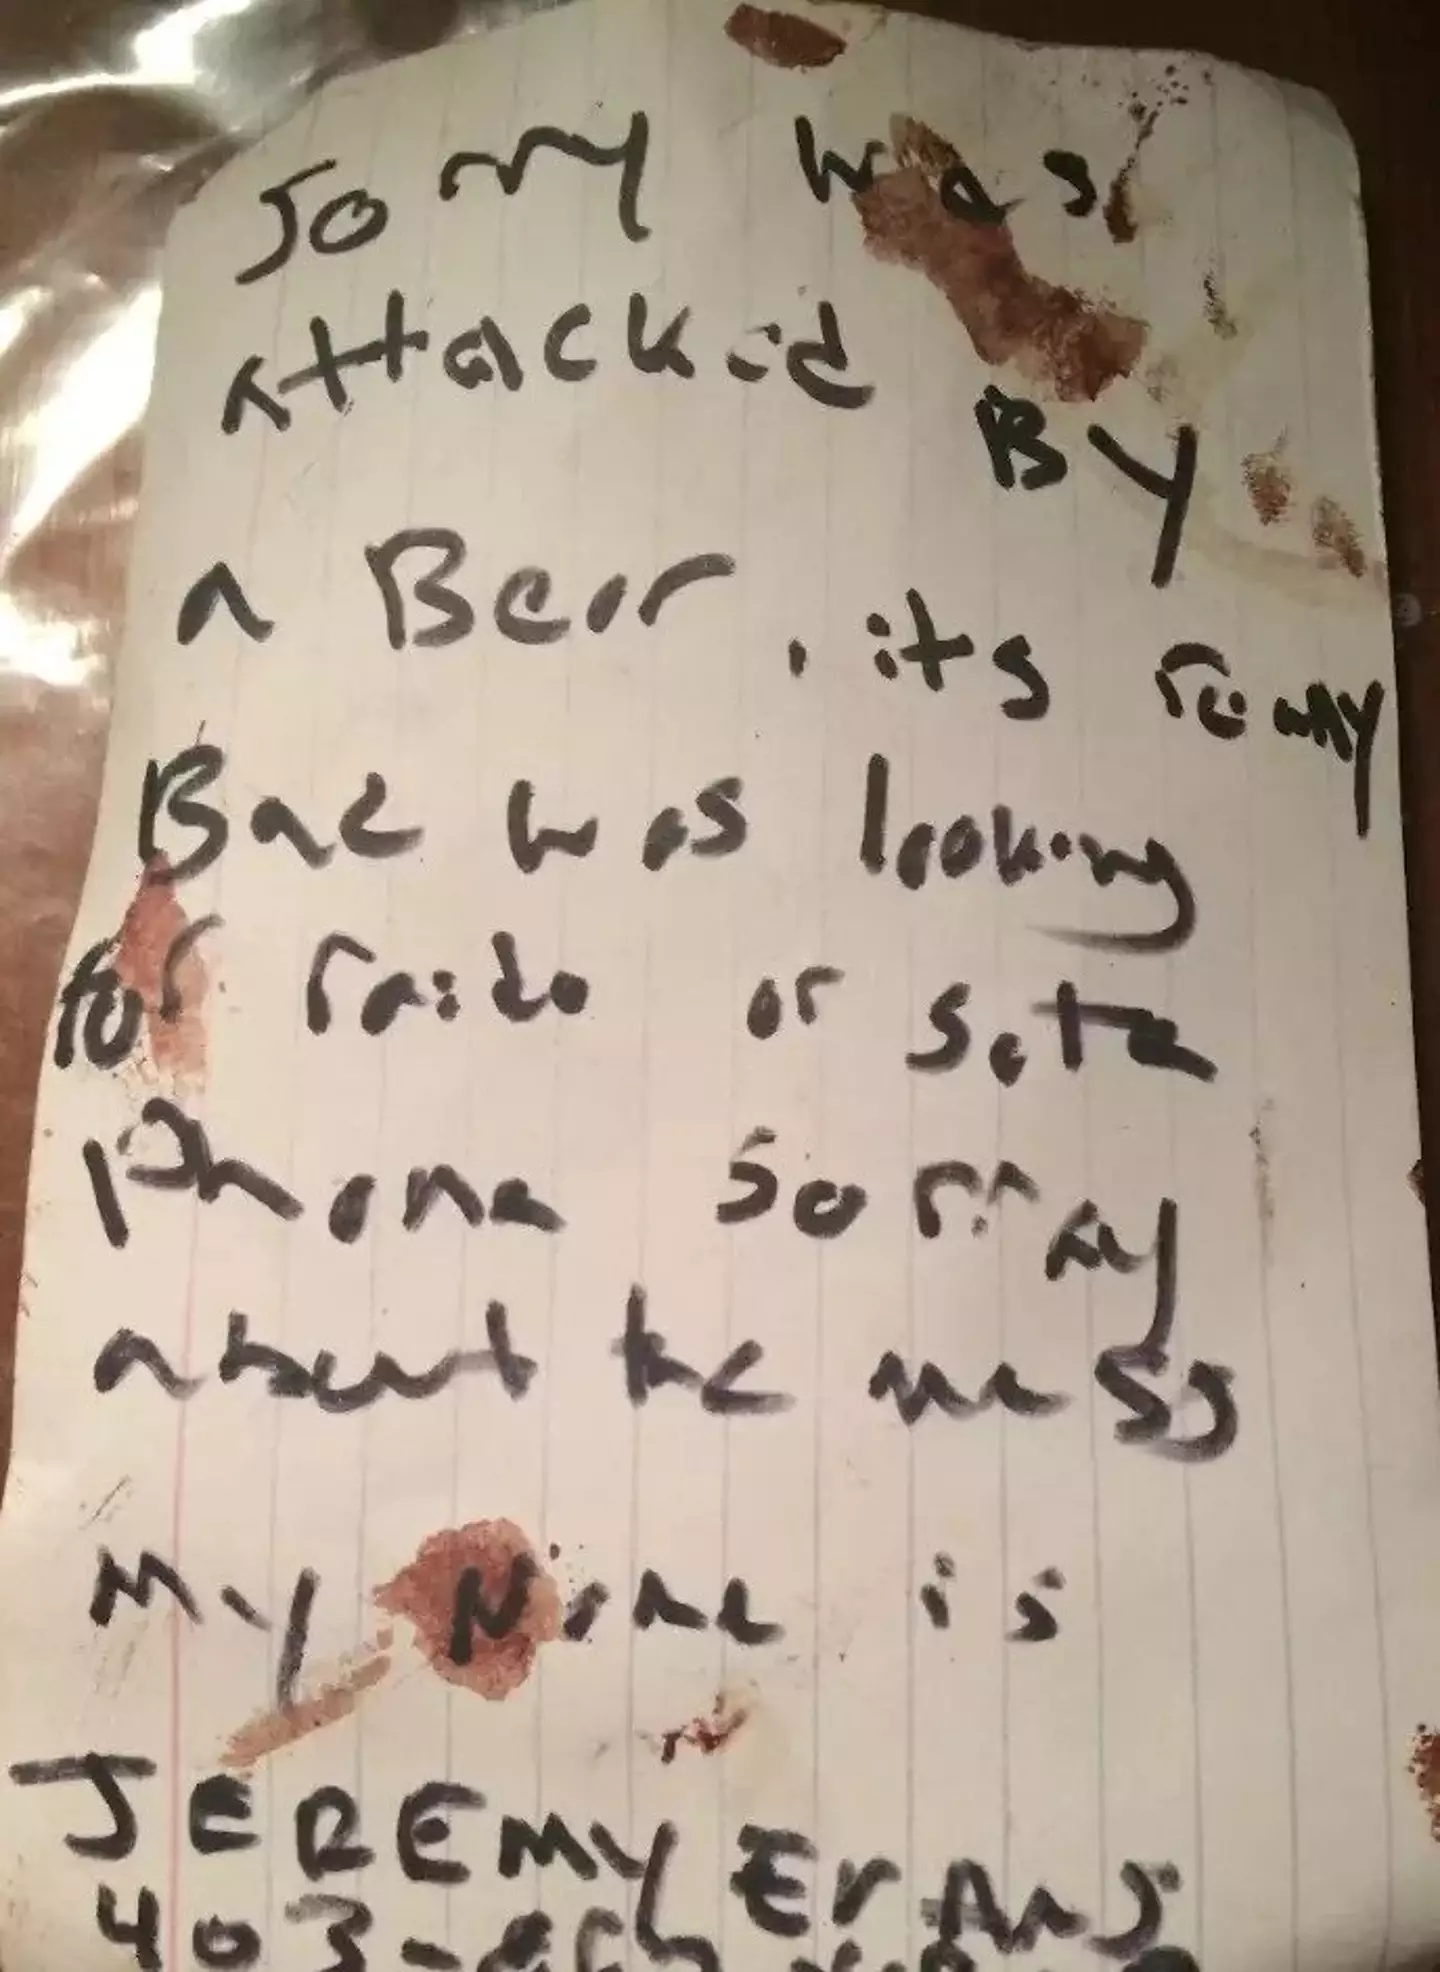 Sorry was
attacked By
a Bear, its really
Bad was looking
for raido or sata
Phone Sorry
about the mess
My Name is
JEREMY EVANS
403-